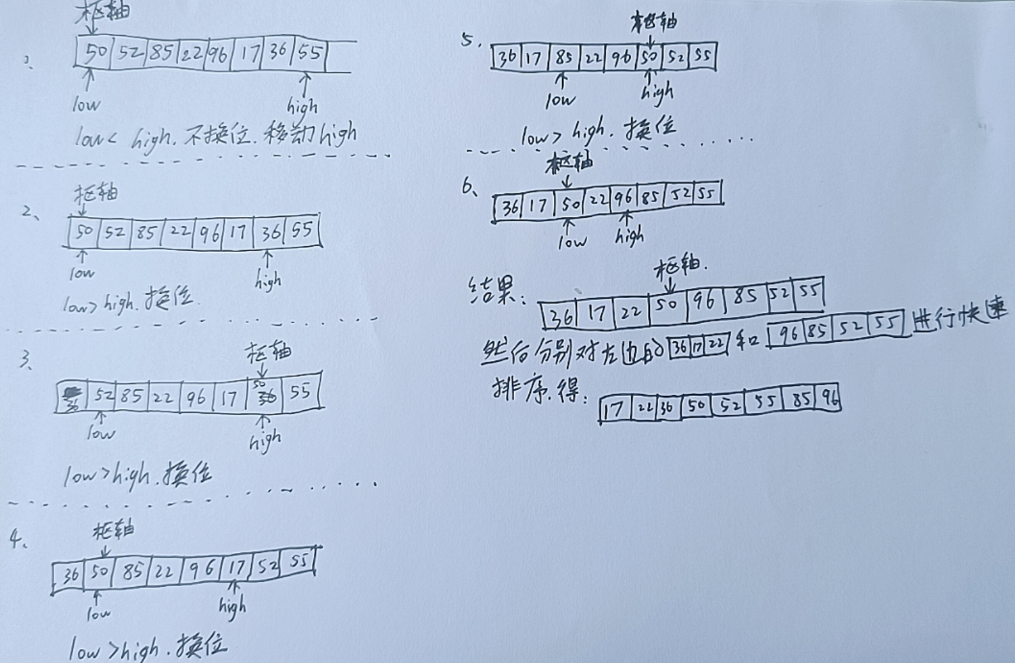 枢轴
1、
50 52 85 22 96 17 36 55
low high
low < high. 不换位. 移动 high
2、
枢轴
50 52 85 22 96 17 36 55
low high
low > high. 换位.
3、
枢轴
36 52 85 22 96 17 50 55
low high
low > high. 换位
4、
枢轴
36 50 85 22 96 17 52 55
low high
low > high. 换位
5、
枢轴
36 17 85 22 96 50 52 55
low high
low > high. 换位
6、
枢轴
36 17 50 22 96 85 52 55
low high
枢轴.
结果: 36 17 22 50 96 85 52 55
然后分别对左边的 36 17 22 和 96 85 52 55 进行快速
排序. 得: 17 22 36 50 52 55 85 96